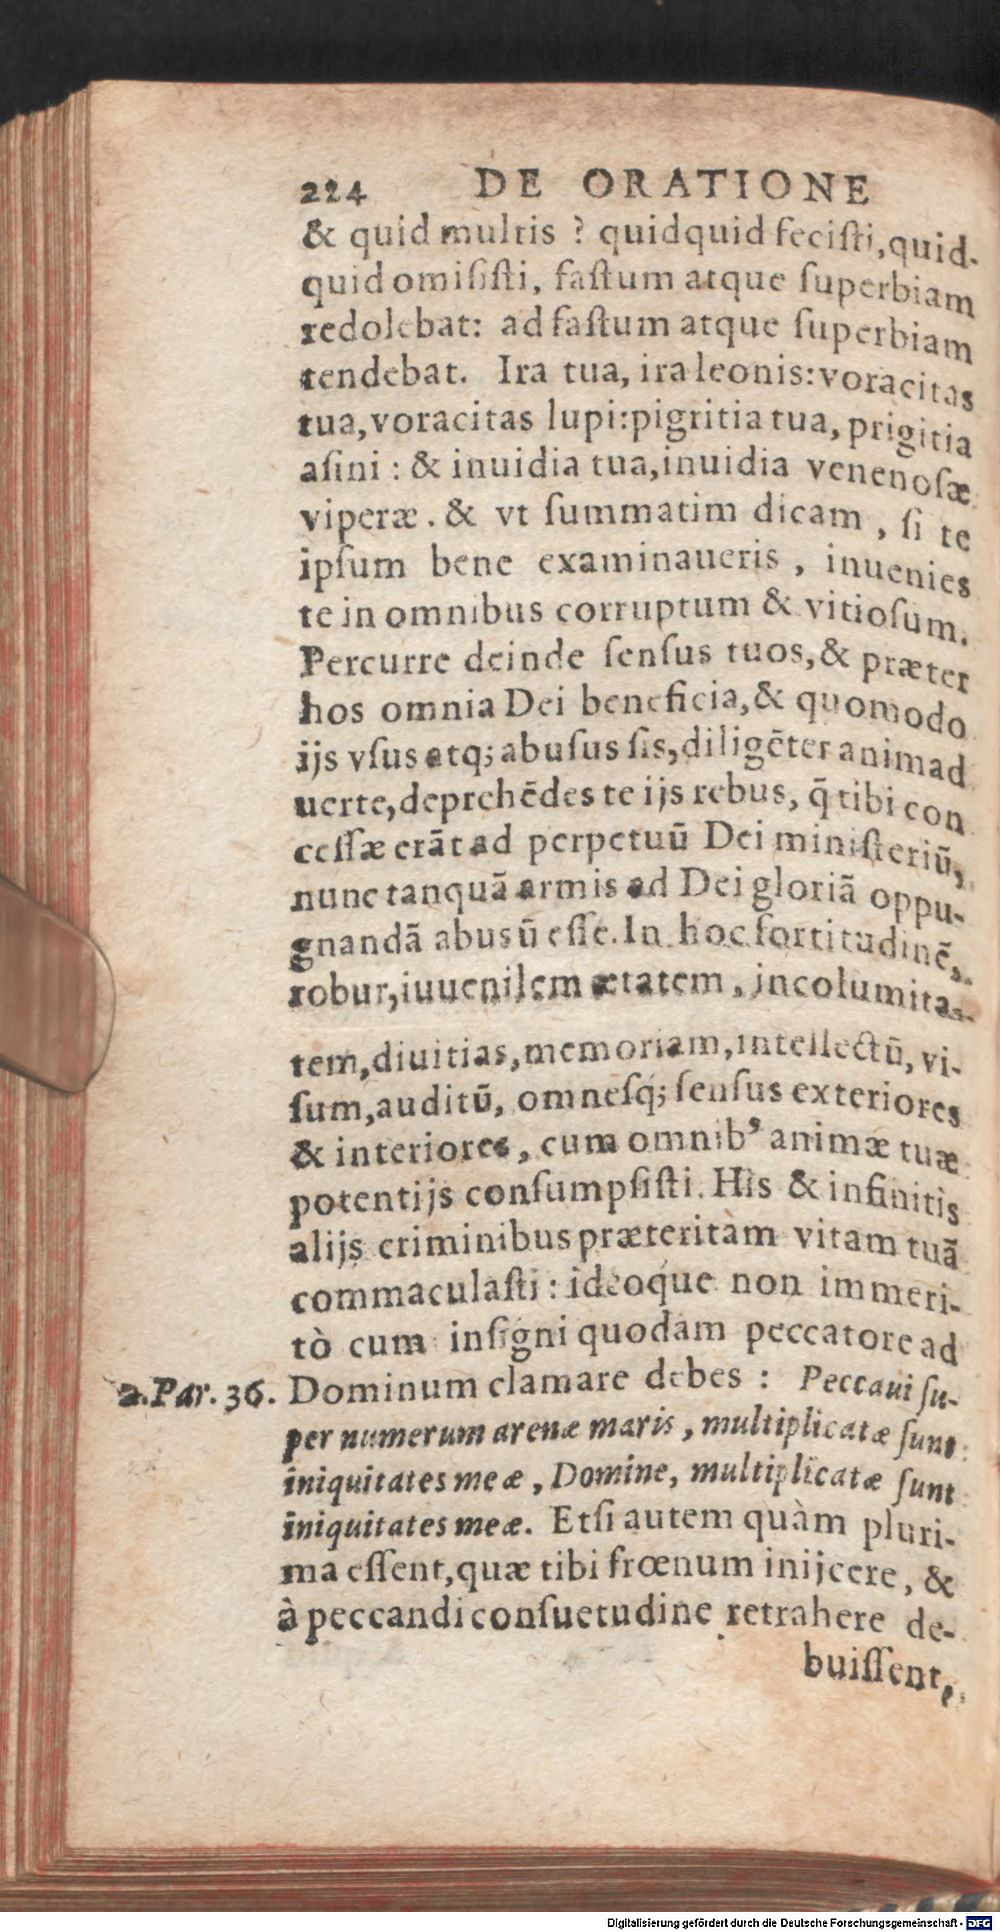 224 DE ORATIONE
& quid multis ? quidquid feciſti, quid-
quid omiſiſti, faſtum atque ſuperbiam
redolebat: ad faſtum atque ſuperbiam
tendebat. Ira tua, ira leonis: voracitas
tua, voracitas lupi: pigritia tua, prigitia
aſini : & inuidia tua, inuidia venenoſæ
viperæ. & vt ſummatim dicam, ſi te
ipſum bene examinaueris, inuenies
te in omnibus corruptum & vitioſum.
Percurre deinde ſenſus tuos, & præter
hos omnia Dei beneficia, & quomodo
ijs vſus atq; abuſus ſis, diligẽter animad
uerte, deprehẽdes te ijs rebus, q̃ tibi con
ceſſæ erãt ad perpetuũ Dei miniſteriũ,
nunc tanquã armis ad Dei gloriã oppu-
gnandã abusũ eſſe. In hoc fortitudinẽ,
robur, iuuenilem ætatem, incolumita-
tem, diuitias, memoriam, intellectũ, vi-
ſum, auditũ, omneſq; ſenſus exteriores
& interiores, cum omnib' animæ tuæ
potentijs conſumpſiſti. His & infinitis
alijs criminibus præteritam vitam tuã
commaculaſti: ideoque non immeri-
tò cum inſigni quodam peccatore ad
2. Par. 36. Dominum clamare debes : Peccaui ſu-
per numerum arenæ maris, multiplicatæ ſunt
iniquitates meæ, Domine, multiplicatæ ſunt
iniquitates meæ. Etſi autem quàm pluri-
ma eſſent, quæ tibi frœnum inijcere, &
à peccandi conſuetudine retrahere de-
buiſſent,
Digitalisierung gefördert durch die Deutsche Forschungsgemeinschaft - DFG